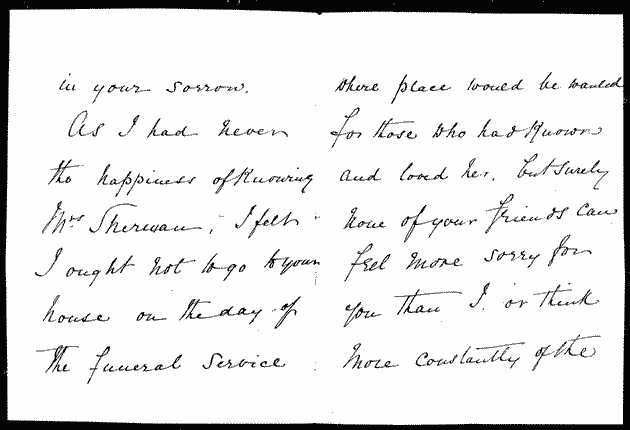 in your sorrow.
As I had never
the happiness of Knowing
Mrs Sherman, I felt
I ought not to go to your
house on the day of
the funeral service
where place would be wanted
for those who had Known
and loved her. but surely
none of your friends can
feel more sorry for
you than I. or think
more constantly of the